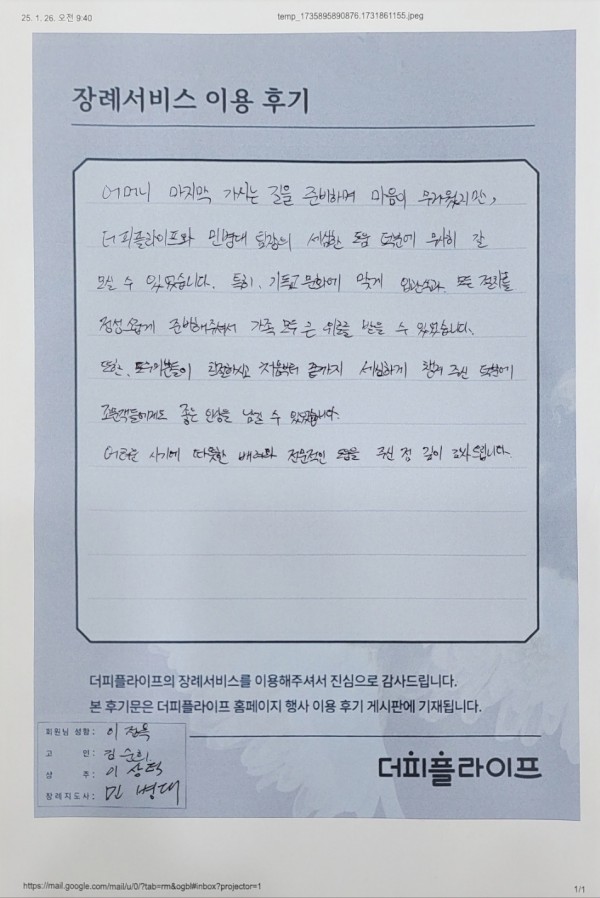 25. 1. 26. 오전 9:40
temp_1735895890876.1731861155.jpeg
장례서비스 이용 후기
어머니 마지막 가시는 길을 준비하며 마음이 무거웠지만,
더피플라이프와 민병대 팀장의 세심한 도움 덕분에 무사히 잘
모실 수 있었습니다. 특히, 기독교 문화에 맞게 입관식과 모든 절차를
정성스럽게 준비해주셔서 가족 모두 큰 위로를 받을 수 있었습니다.
또한, 도우미분들이 친절하시고 처음부터 끝까지 세심하게 챙겨 주신 덕분에
조문객들에게도 좋은 인상을 남길 수 있었습니다.
어려운 시기에 따뜻한 배려와 전문적인 도움을 주신 점 깊이 감사드립니다.
더피플라이프의 장례서비스를 이용해주셔서 진심으로 감사드립니다.
본 후기문은 더피플라이프 홈페이지 행사 이용 후기 게시판에 기재됩니다.
회원님 성함 : 이
고 인 : 김순희
상 주 : 이상택
장례지도사 : 민병대
더피플라이프
https://mail.google.com/mail/u/0/?tab=rm&ogbl#inbox?projector=1
1/1